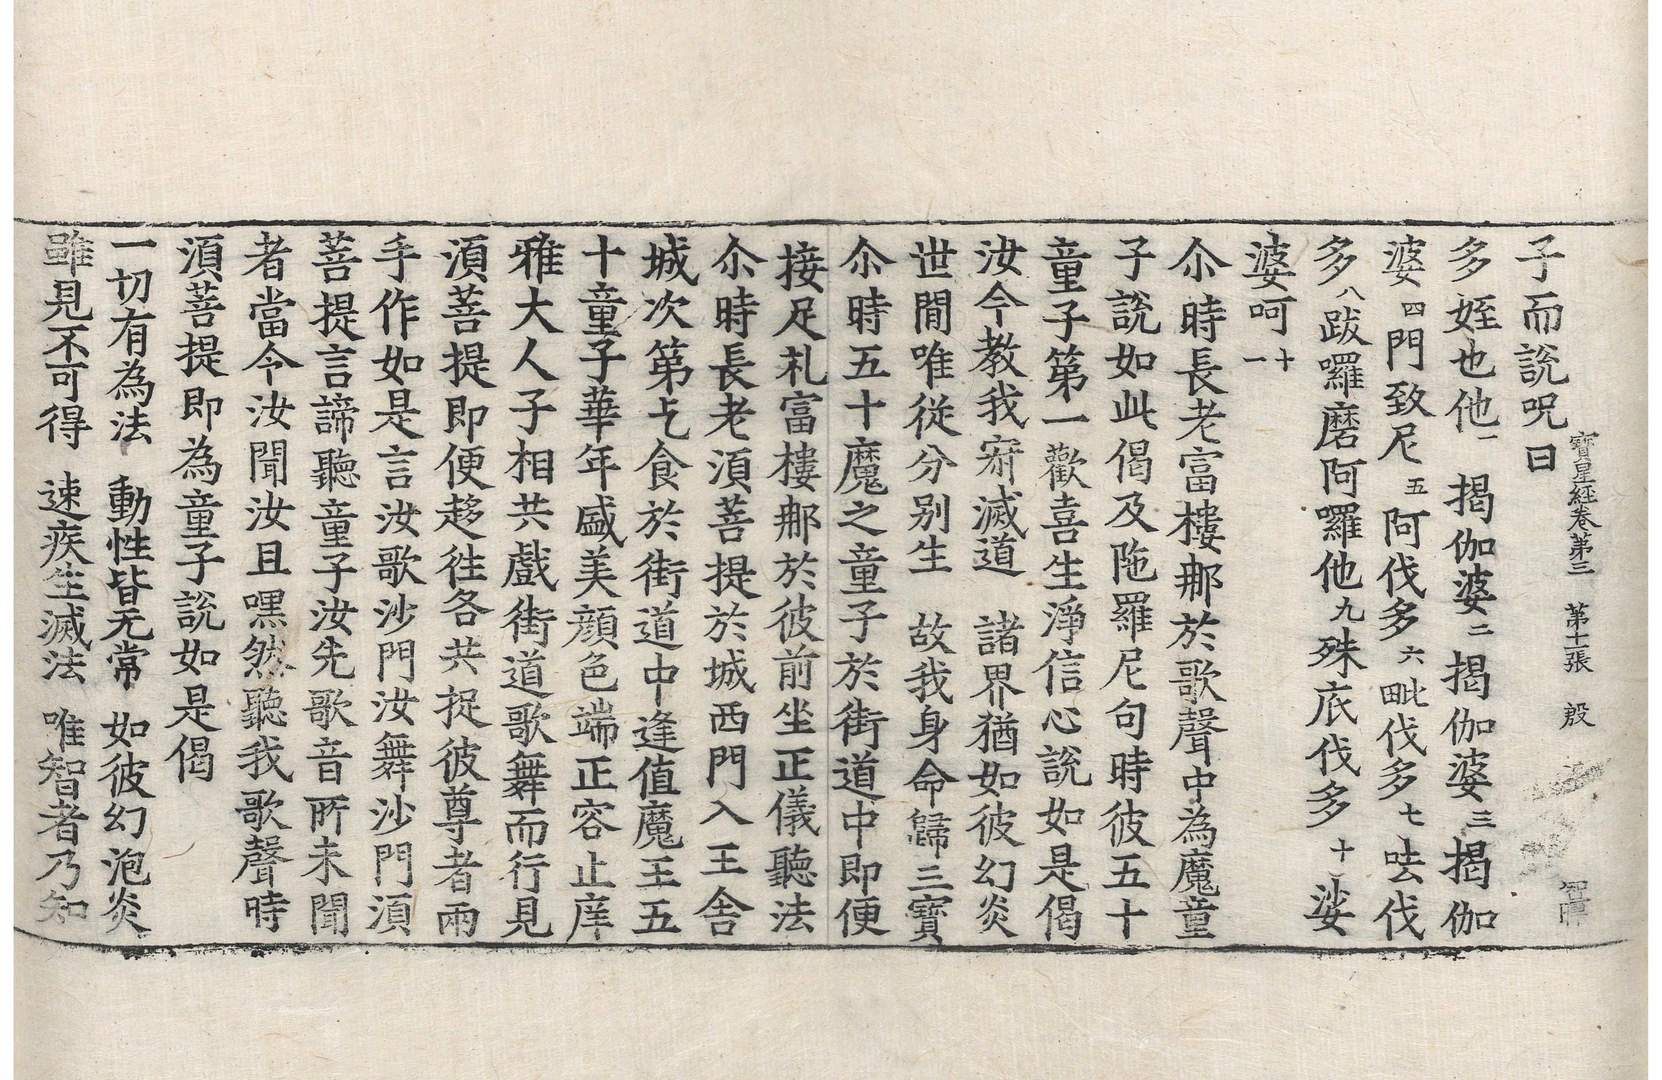 寶星經卷第三　第十一張　殷　智暉
子而說呪曰
多姪也他一　揭伽婆二揭伽婆三揭伽
婆四門致尼五阿伐多六毗伐多七呿伐
多八跋囉磨阿囉他九殊底伐多十娑
婆呵十一
尒時長老富樓那於歌聲中為魔童
子說如此偈及陁羅尼句時彼五十
童子第一歡喜生淨信心說如是偈
汝今教我寂滅道　諸界猶如彼幻炎
世間唯從分別生　故我身命歸三寶
尒時五十魔之童子於街道中即便
接足礼富樓那於彼前坐正儀聽法
尒時長老湏菩提於城西門入王舍
城次第乞食於街道中逢值魔王五
十童子華年盛美顔色端正容止庠
雅大人子相共戲街道歌舞而行見
湏菩提即便趍往各共捉彼尊者兩
手作如是言汝歌沙門汝舞沙門湏
菩提言諦聽童子汝先歌音所未聞
者當令汝聞汝且嘿然聽我歌聲時
湏菩提即為童子說如是偈
一切有為法　動性皆无常　如彼幻泡炎
雖見不可得　速疾生滅法　唯智者乃知